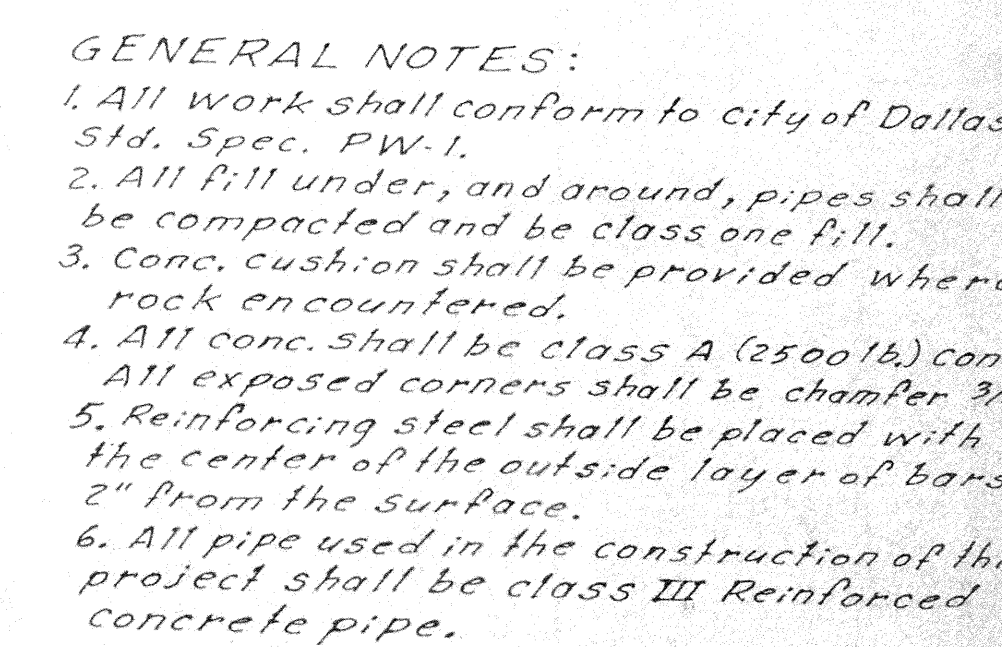 GENERAL NOTES:
1. All work shall conform to city of Dallas
Std. Spec. PW-1.
2. All fill under, and around, pipes shall
be compacted and be class one fill.
3. Conc. cushion shall be provided where
rock encountered.
4. All conc. shall be class A (2500 lb.) con
All exposed corners shall be chamfer
5. Reinforcing steel shall be placed with
the center of the outside layer of bars
2" from the surface.
6. All pipe used in the construction of thi
project shall be class III Reinforced
concrete pipe.